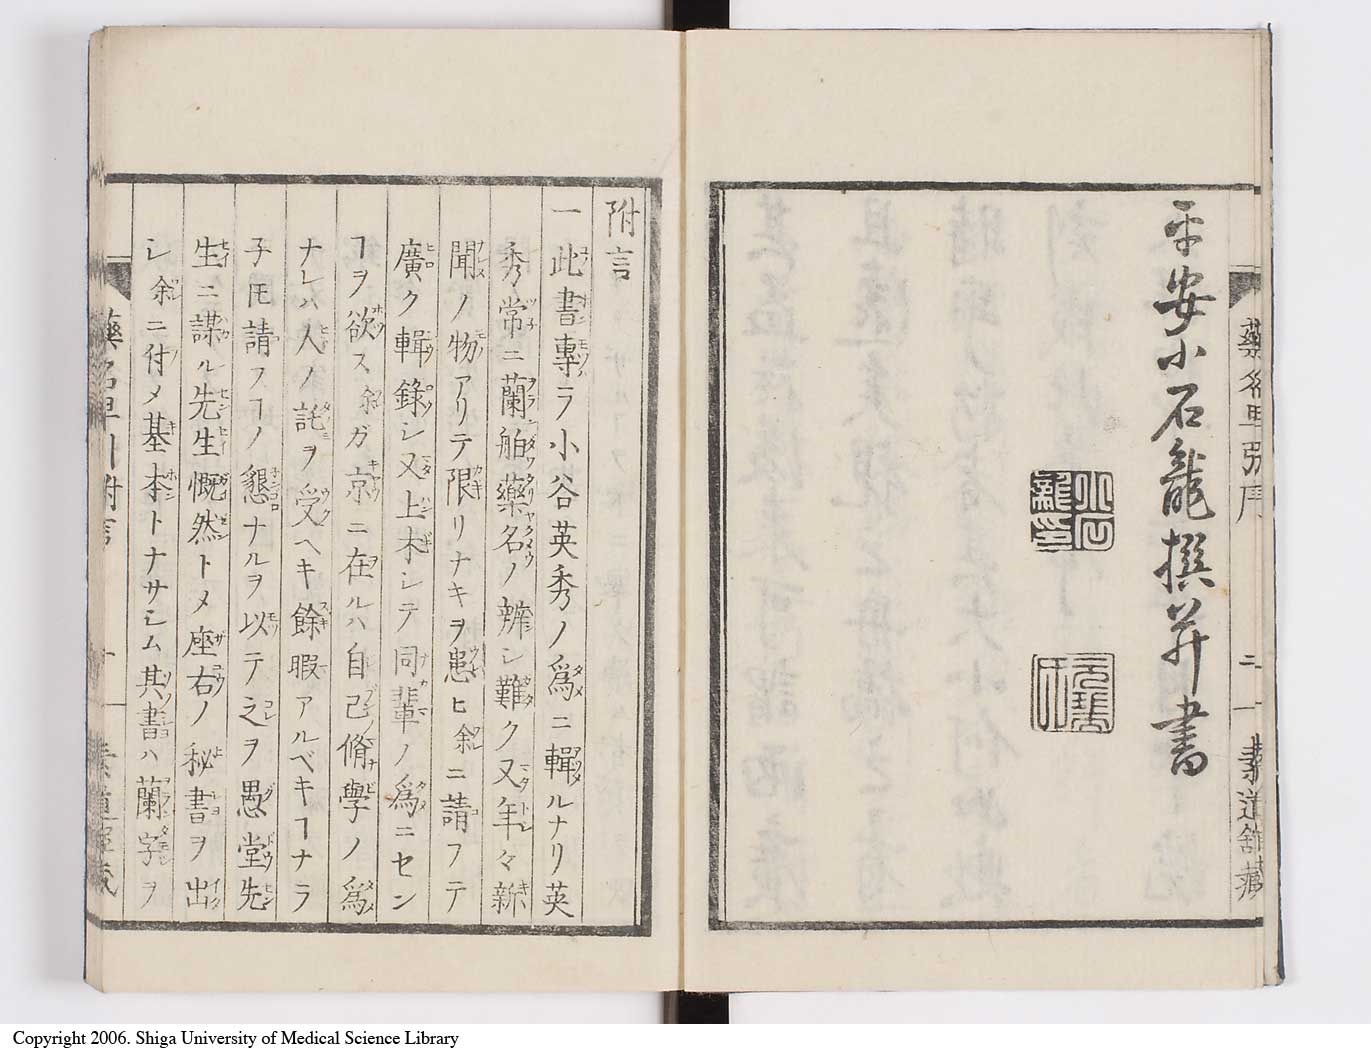 藥名早引序
二
平安小石龍撰并書
小石
龍印
元瑞
氏
附言
一此書專ラ小谷英秀ノ爲ニ輯ルナリ英
秀常ニ蘭舶藥名ノ辨シ難ク又年々新
聞ノ物アリテ限リナキヲ患ヒ余ニ請フテ
廣ク輯錄シ又上木シテ同輩ノ爲ニセン
ヿヲ欲ス余ガ京ニ在ルハ自己脩學ノ爲
ナレハ人ノ託ヲ受ヘキ餘暇アルベキヿナラ
子𪜈請フヿノ懇ナルヲ以テ之ヲ愚堂先
生ニ謀ル先生慨然トメ座右ノ秘書ヲ出
シ余ニ付メ基本トナサシム其書ハ蘭字ヲ
藥名早引附言
一
Copyright 2006. Shiga University of Medical Science Library